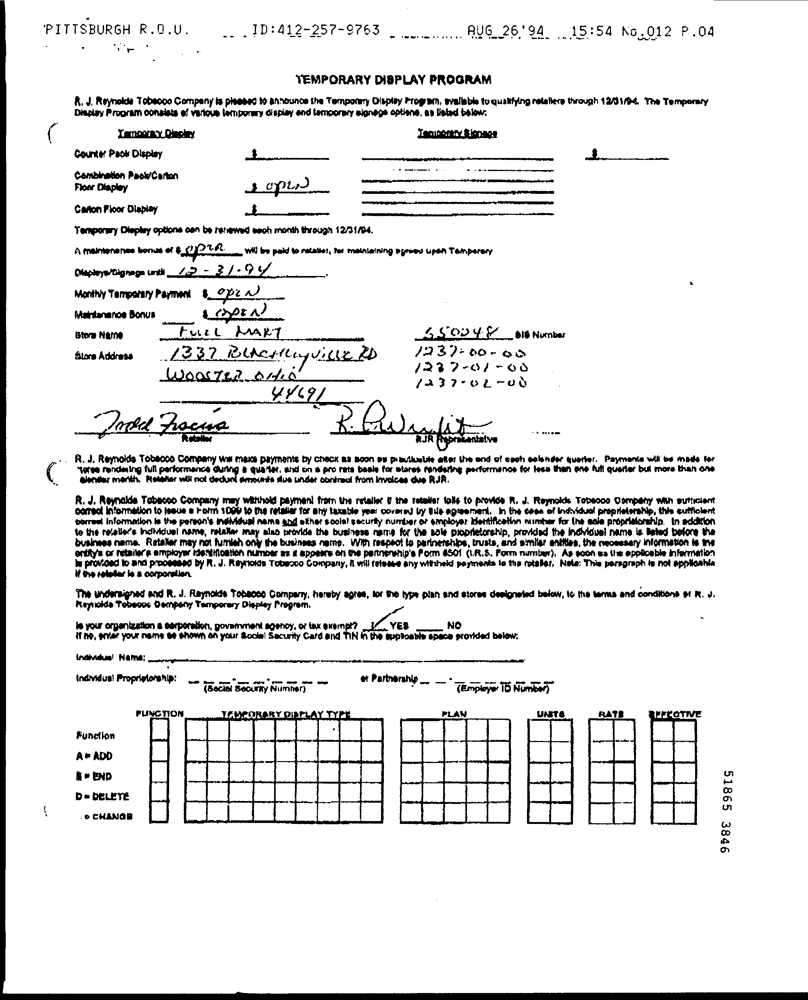 PITTSBURGH R.O.U. ID:412-257-9763 AUG 26'94 15:54 No.012 P.04
TEMPORARY DISPLAY PROGRAM
R. J. Reynolds Tobacco Company is pleased to announce the Temporary Display Program, available to qualifying retailers through 12/31/94. The Temporary
Display Program consists of various temporary display and temporary signage options, as listed below:
Temporary Display Temporary Signage
Counter Pack Display $ $
Combination Pack/Carton
Floor Display $ OPEN
Carton Floor Display $
Temporary Display options can be renewed each month through 12/31/94.
A maintenance bonus of $ OPEN will be paid to retailer, for maintaining agreed upon Temporary
Displays/Signage until 12-31-94.
Monthly Temporary Payment $ OPEN
Maintenance Bonus $ OPEN
Store Name FUEL MART 550248 SIS Number
Store Address 1337 RD 1237-00-00
WOOSTER OHIO 1237-01-00
44691 1237-02-00
Todd R.
Retailer RJR Representative
R. J. Reynolds Tobacco Company will make payments by check as soon as practicable after the end of each calendar quarter. Payments will be made for
stores rendering full performance during a quarter, and on a pro rata basis for stores rendering performance for less than one full quarter but more than one
calendar month. Retailer will not deduct amounts due under contract from invoices due RJR.
R. J. Reynolds Tobacco Company may withhold payment from the retailer if the retailer fails to provide R. J. Reynolds Tobacco Company with sufficient
correct information to issue a Form 1099 to the retailer for any taxable year covered by this agreement. In the case of individual proprietership, this sufficient
correct information is the person's individual name and either social security number or employer identification number for the sole proprietorship. In addition
to the retailer's individual name, retailer may also provide the business name for the sole proprietorship, provided the individual name is listed before the
business name. Retailer may not furnish only the business name. With respect to partnerships, trusts, and similar entities, the necessary information is the
entity's or retailer's employer identification number as it appears on the partnership's Form 8501 (I.R.S. Form number). As soon as the applicable information
is provided to and processed by R. J. Reynolds Tobacco Company, it will release any withheld payments to the retailer. Note: This paragraph is not applicable
if the retailer is a corporation.
The undersigned and R. J. Reynolds Tobacco Company, hereby agree, for the type plan and stores designated below, to the terms and conditions of R. J.
Reynolds Tobacco Company Temporary Display Program.
Is your organization a corporation, government agency, or tax exempt? ✓ YES NO
If no, enter your name as shown on your Social Security Card and TIN in the applicable space provided below:
Individual Name:
Individual Proprietorship: - - or Partnership -
(Social Security Number) (Employer ID Number)
FUNCTION TEMPORARY DISPLAY TYPE PLAN UNITS RATE EFFECTIVE
Function
A = ADD
E = END
D = DELETE
= CHANGE
51865 3846